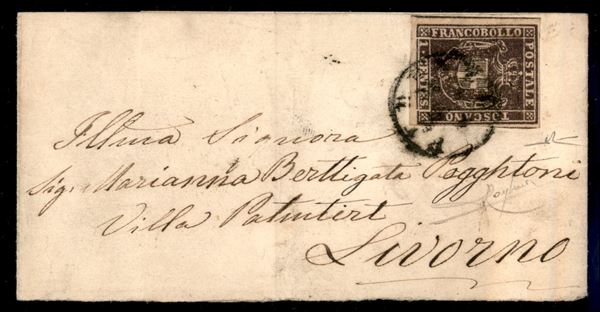 FRANCOBOLLO
POSTALE
TOSCANO
Illma Signora
Sig. Marianna Berttigata Pogghtoni
Villa
Livorno